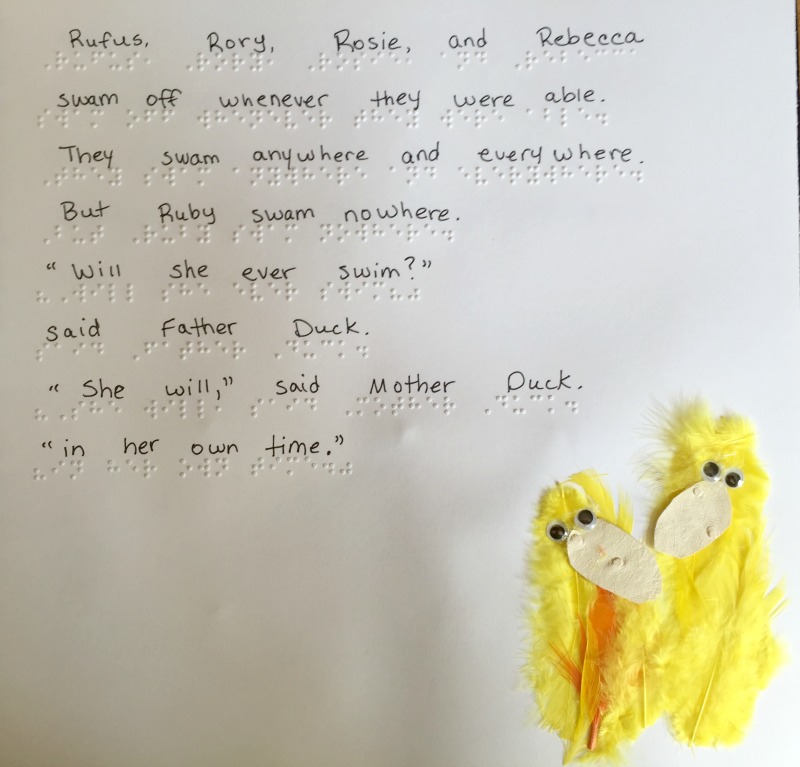 Rufus, Rory, Rosie, and Rebecca
swam off whenever they were able.
They swam anywhere and everywhere.
But Ruby swam nowhere.
"Will she ever swim?"
said Father Duck.
"She will," said Mother Duck.
"in her own time."